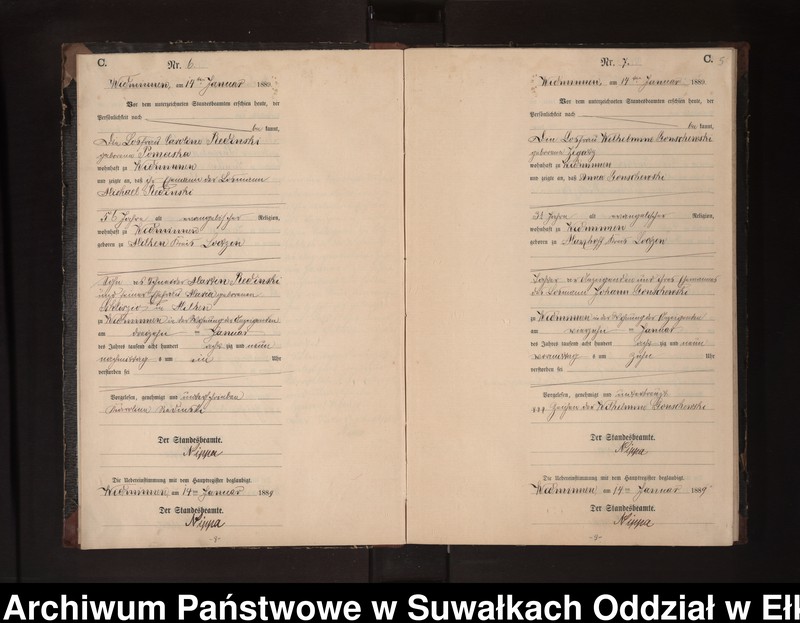 C.
Nr. 6
Widminnen, am 14ten Januar 1889
Vor dem unterzeichneten Standesbeamten erschien heute, der
Persönlichkeit nach
be kannt,
Die Losfrau Caroline Redinski
geborene
wohnhaft zu Widminnen
und zeigte an, daß ihr Ehemann der Losmann
Michael Redinski
56 Jahre alt evangelischer Religion,
wohnhaft zu Widminnen
geboren zu Milken Kreis Loetzen
Sohn des Redinski
und seiner Ehefrau Maria geborenen
in Milken
zu Widminnen in der Wohnung der Anzeigenden
am dreizehn ten Januar
des Jahres tausend acht hundert achtzig und neun
nachmittag s um ein Uhr
verstorben sei
Vorgelesen, genehmigt und unterschrieben
Karoline Redinski
Der Standesbeamte.
Nippa
Die Uebereinstimmung mit dem Hauptregister beglaubigt.
Widminnen am 14ten Januar 1889
Der Standesbeamte.
Nippa
Nr. 7.
C.
5
Widminnen, am 14ten Januar 1889
Vor dem unterzeichneten Standesbeamten erschien heute, der
Persönlichkeit nach
be kannt,
Die Losfrau Wilhelmine Gonschewski
geborene
wohnhaft zu Widminnen
und zeigte an, daß Anna Gonschewski
Jahre alt evangelischer Religion,
wohnhaft zu Widminnen
geboren zu Kreis Loetzen
Tochter der Anzeigenden und ihres Ehemannes
des Losmann Johann Gonschewski
zu Widminnen in der Wohnung der Anzeigenden
am vierzehn ten Januar
des Jahres tausend acht hundert achtzig und neun
vormittag s um zehn Uhr
verstorben sei
Vorgelesen, genehmigt und unterkreuzt
+++ Zeichen der Wilhelmine Gonschewski
Der Standesbeamte.
Nippa
Die Uebereinstimmung mit dem Hauptregister beglaubigt.
Widminnen am 14ten Januar 1889
Der Standesbeamte.
Nippa
Archiwum Państwowe w Suwałkach Oddział w Ełk